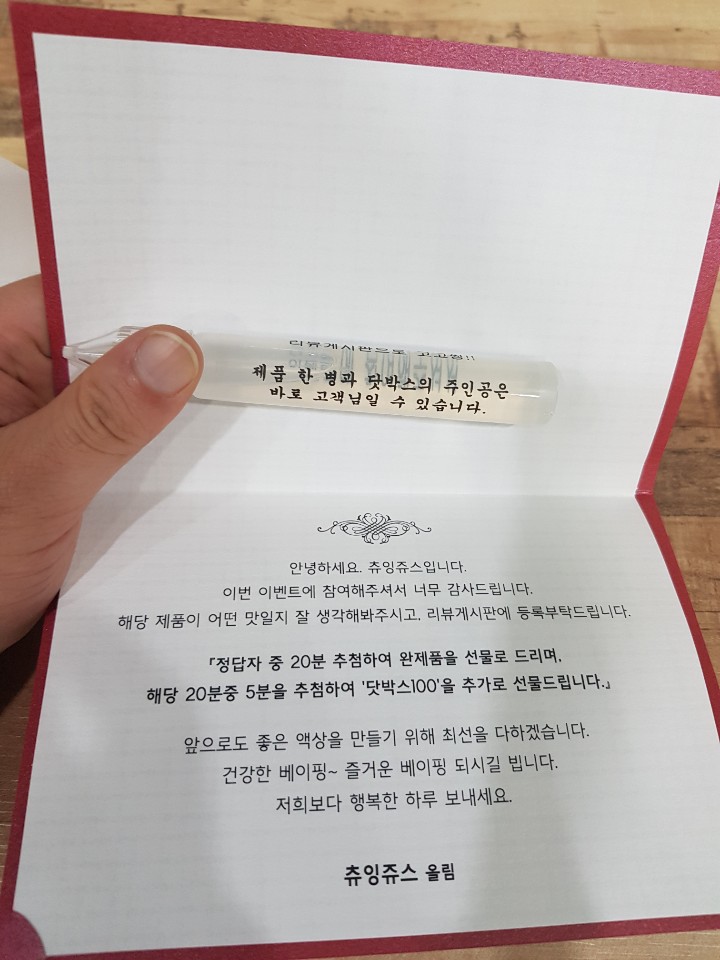 리뷰게시판으로 고고씽!!
제품 한 병과 닷박스의 주인공은
바로 고객님일 수 있습니다.
안녕하세요. 츄잉쥬스입니다.
이번 이벤트에 참여해주셔서 너무 감사드립니다.
해당 제품이 어떤 맛일지 잘 생각해봐주시고, 리뷰게시판에 등록부탁드립니다.
『정답자 중 20분 추첨하여 완제품을 선물로 드리며,
해당 20분중 5분을 추첨하여 '닷박스100'을 추가로 선물드립니다.』
앞으로도 좋은 액상을 만들기 위해 최선을 다하겠습니다.
건강한 베이핑~ 즐거운 베이핑 되시길 빕니다.
저희보다 행복한 하루 보내세요.
츄잉쥬스 올림